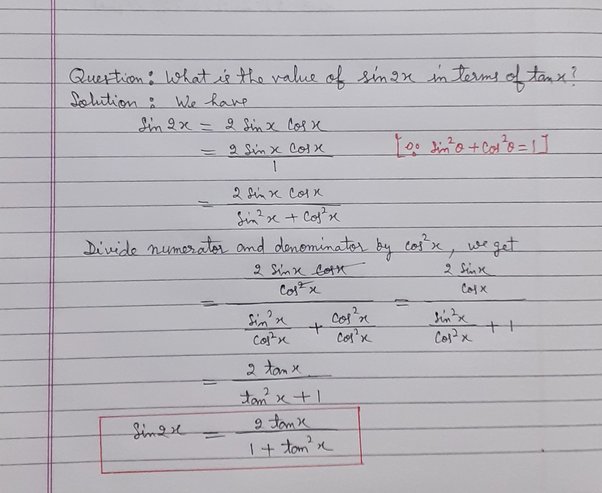 Question: What is the value of sin2x in terms of tanx?
Solution: We have
Sin 2x = 2 Sinx Cosx
= 2 Sinx Cosx / 1 [∵ Sin²θ + Cos²θ = 1]
= 2 Sinx Cosx / Sin²x + Cos²x
Divide numerator and denominator by Cos²x, we get
= 2 Sinx Cosx / Cos²x / Sin²x / Cos²x + Cos²x / Cos²x = 2 Sinx / Cosx / Sin²x / Cos²x + 1
= 2 tanx / tan²x + 1
Sin2x = 2 tanx / 1 + tan²x